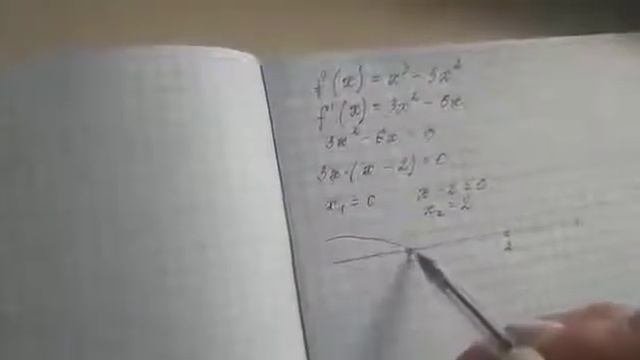 f(x) = x³ - 3x²
f'(x) = 3x² - 6x
3x² - 6x = 0
3x·(x - 2) = 0
x₁ = 0 x - 2 = 0
x₂ = 2
2